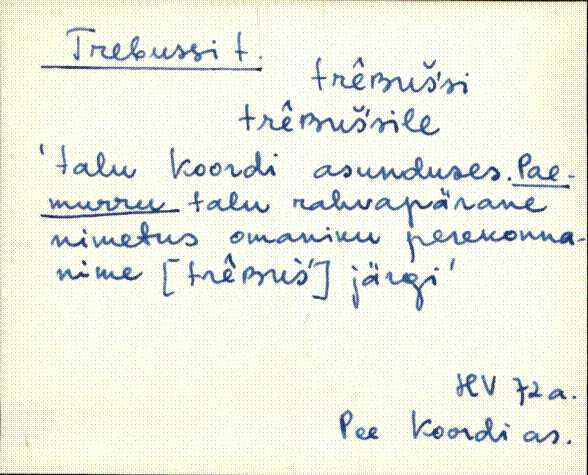 Trebussi t.
trêʙuš́si
trêʙuš́sile
'talu Koordi asunduses. Pae-
murru talu rahvapärane
nimetus omaniku perekonna-
nime [trêʙuš́] järgi'
HV 72 a.
Pee Koordi as.